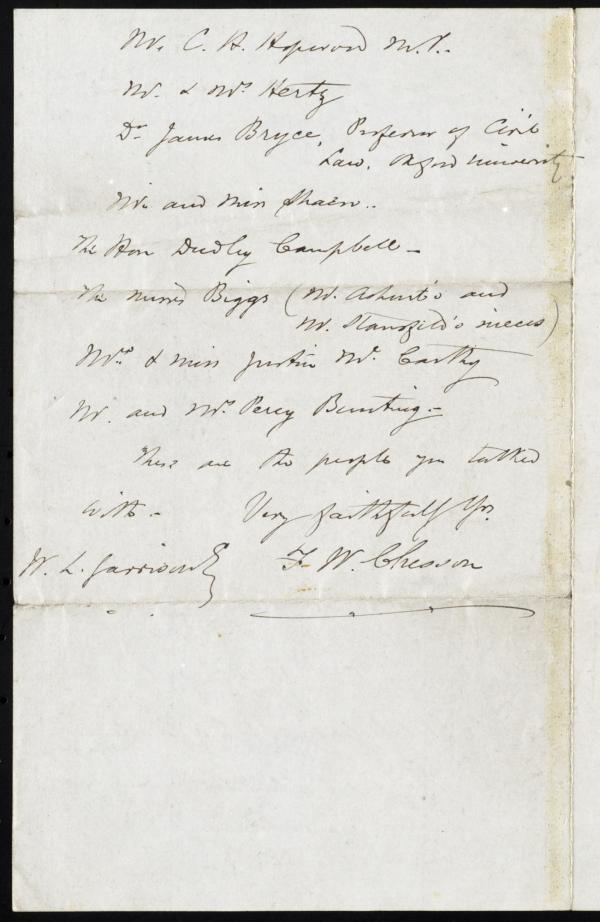 Mr. C. H. Hopwood M.P.
Mr. & Mrs. Hertz
Dr. James Bryce, Professor of Civil
Law, Oxford University
Mr. and Miss Shaen.
The Hon Dudley Campbell -
The Misses Biggs (Mr. Ashurst's and
Mr. Stansfeld's nieces)
Mrs. & Miss Justin McCarthy
Mr. and Mrs. Percy Bunting -
These are the people you talked
with - Very faithfully Yrs.
W. L. Garrison F. W. Chesson